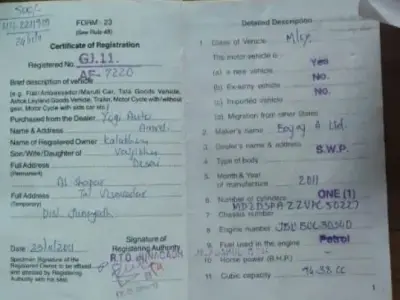 FORM - 23
(See Rule 48)
Certificate of Registration
Registered No. GJ.11.
AF-7220
Brief description of vehicle
(e.g. Fiat/Ambassador/Maruti Car, Tata Goods Vehicle,
Ashok Leyland Goods Vehicle, Trailor, Motor Cycle with/without
gear, Motor Cycle with side car etc.)
Purchased from the Dealer Yogi Auto
Name & Address
Name of Registered Owner
Son/Wife/Daughter of
Full Address Desai
(Permanent)
At. Shapar
Full Address Ta Visavadar
(Temporary)
Dist. Junagadh
Date: 23/11/2011
Signature of
Registering Authority
R.T.O. JUNAGADH
Specimen Signature of the
Registered Owner to be affixed
and attested by Registering
Authority with his seal.
Detailed Description
1 Class of Vehicle M/cy.
The motor vehicle is :- Yes
(a) a new vehicle No.
(b) Ex-army vehicle No.
(c) Imported vehicle
(d) Migration from other States
2. Maker's name Bajaj A Ltd.
3. Dealer's name & address
4. Type of body S.W.P.
5. Month & Year
of manufacture 2011
6. Number of cylinders ONE (1)
7. Chassis number
8. Engine number
9. Fuel used in the engine Petrol
10. Horse power (B.H.P.)
11. Cubic capacity 94.38 CC